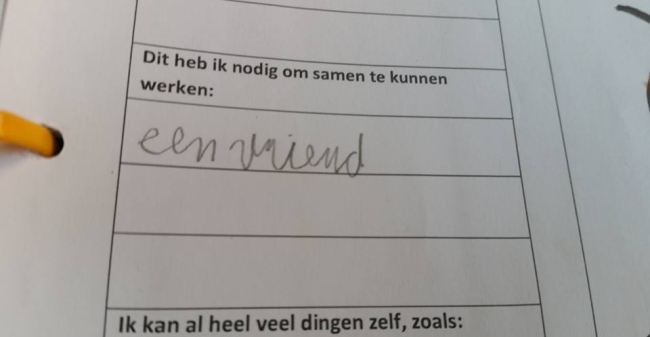 Dit heb ik nodig om samen te kunnen
werken:
een vriend
Ik kan al heel veel dingen zelf, zoals: